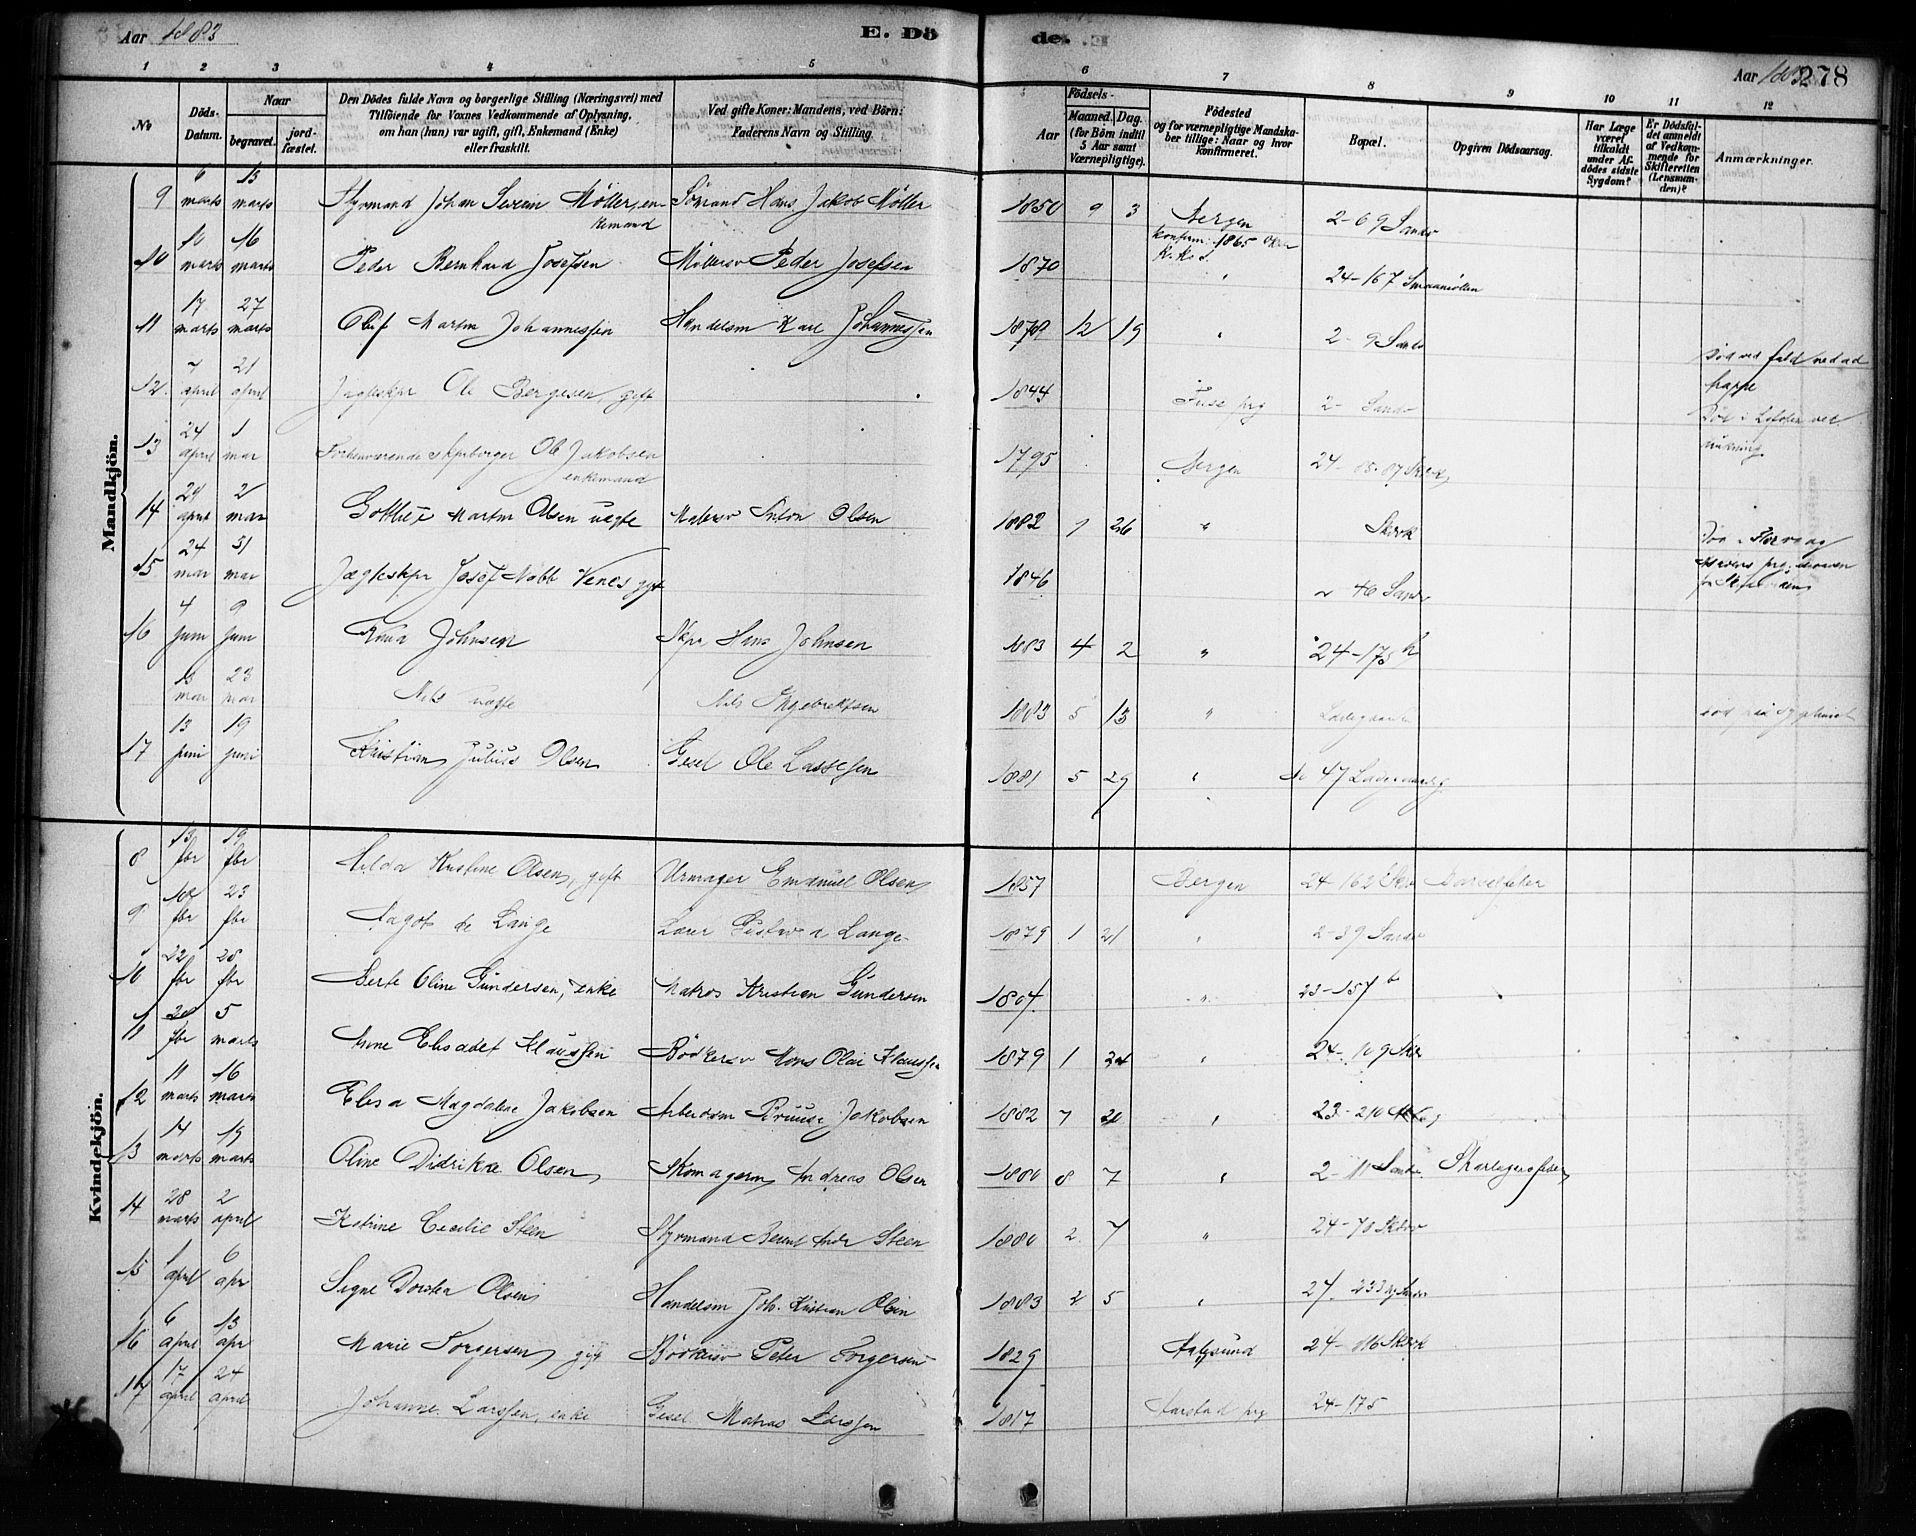 Aar 1883
E. Dö
de.
Aar 1883
278
1 2 3 4 5
6 7 8 9 10 11 12
No
Döds-
Datum.
Naar
begravet.
jord-
fæstet.
Den Dödes fulde Navn og borgerlige Stilling (Næringsvei) med
Tilföiende for Voxnes Vedkommende af Oplysning,
om han (hun) var ugift, gift, Enkemand (Enke)
eller fraskilt.
Ved gifte Koner: Mandens, ved Börn:
Faderens Navn og Stilling.
Födsels-
Aar
Maaned. Dag.
(for Börn indtil
5 Aar samt
Værnepligtige).
Födested
og for værnepligtige Mandska-
ber tillige: Naar og hvor
konfirmeret.
Bopæl.
Opgiven Dödsaarsag.
Har Læge
været
tilkaldt
under Af-
dödes sidste
Sygdom?
Er Dödsfal-
det anmeldt
af Vedkom-
mende for
Skifteretten
(Lensman-
den)?
Anmærkninger.
Mandkjön.
9 6 marts 13 marts Styrmand Johan Severin Möller, en-
kemand
Sömand Hans Jakob Möller 1850 9 3 Bergen
konfirm. 1865
2-69 Sandv
10 10 marts 16 marts Peder Bernhard Josefsen Möllersv Peder Josefsen 1870 " 24-167 Smaamöllen
11 17 marts 27 marts Oluf Martin Johannessen Handelsm Karl Johannessen 1878 12 19 " 2-9 Sandv
12. 7 april 21 april Jagteskpr Ole Bergesen, gift 1844 Fuse prg 2- Sandv död ved fald ned ad
trappe
13 24 april 1 mai Forhenværende Skpsborger Ole Jakobsen
enkemand
1795 Bergen 24-85-87 Skivk Död i Lofoten ved
14 29 april 2 mai Gottlieb Martin Olsen uægte Malersv Anton Olsen 1882 1 26 " Skivk
15 24 mai 31 mai Jagteskpr Josef Nobb Venes gift 1846 2 46 Sandv
16 4 juni 9 juni Johnsen Skpr Hans Johnsen 1883 4 2 " 24-175 h
13 mai 23 mai Nils uægte Nils Ingebrektsen 1883 5 13 " Ladegaarden
17 13 juni 19 juni Kristian Julius Olsen Gesel Ole Lassesen 1881 5 29 " No 47 Ladegaardsg
Kvindekjön.
8 13 fbr 19 fbr Hilda Kristine Olsen, gift Urmager Emanuel Olsen 1857 Bergen 24-162 Skiv Barselfeber
9 18 fbr 23 fbr Dagot de Lange Lærer Gustav d Lange 1879 1 21 " 2-39 Sandv
10 22 fbr 28 fbr Berte Oline Gundersen, enke Matros Kristian Gundersen 1804 " 23-157 b
11 28 fbr 5 marts Anne Elisabet Klaussen Bödkersv Mons Olai Klaussen 1879 1 24 " 24-109 Skiv
12 11 marts 16 marts Elisa Magdalene Jakobsen Arbeidsm Bruuse Jakobsen 1882 7 21 " 23-210
13 14 marts 19 marts Oline Didrika Olsen Skomagerm Andreas Olsen 1880 8 7 " 2-11 Sandv Skarlagensfeber
14 28 marts 2 april Katrine Cecilie Steen Styrmand Berent Andr Steen 1880 2 7 " 24-78 Skivv
15 1 april 6 apr Signe Dortea Olsen Handelsm Joh. Kristian Olsen 1883 2 5 " 24-233
16 6 april 13 apr Marie Torgersen, gift Bödkersv Peter Torgersen 1829 Aalesund 24-116 Skivk
17 17 april 24 april Johanne Larssen, enke Gesel Matias Larssen 1817 Aarstad prg 24-175